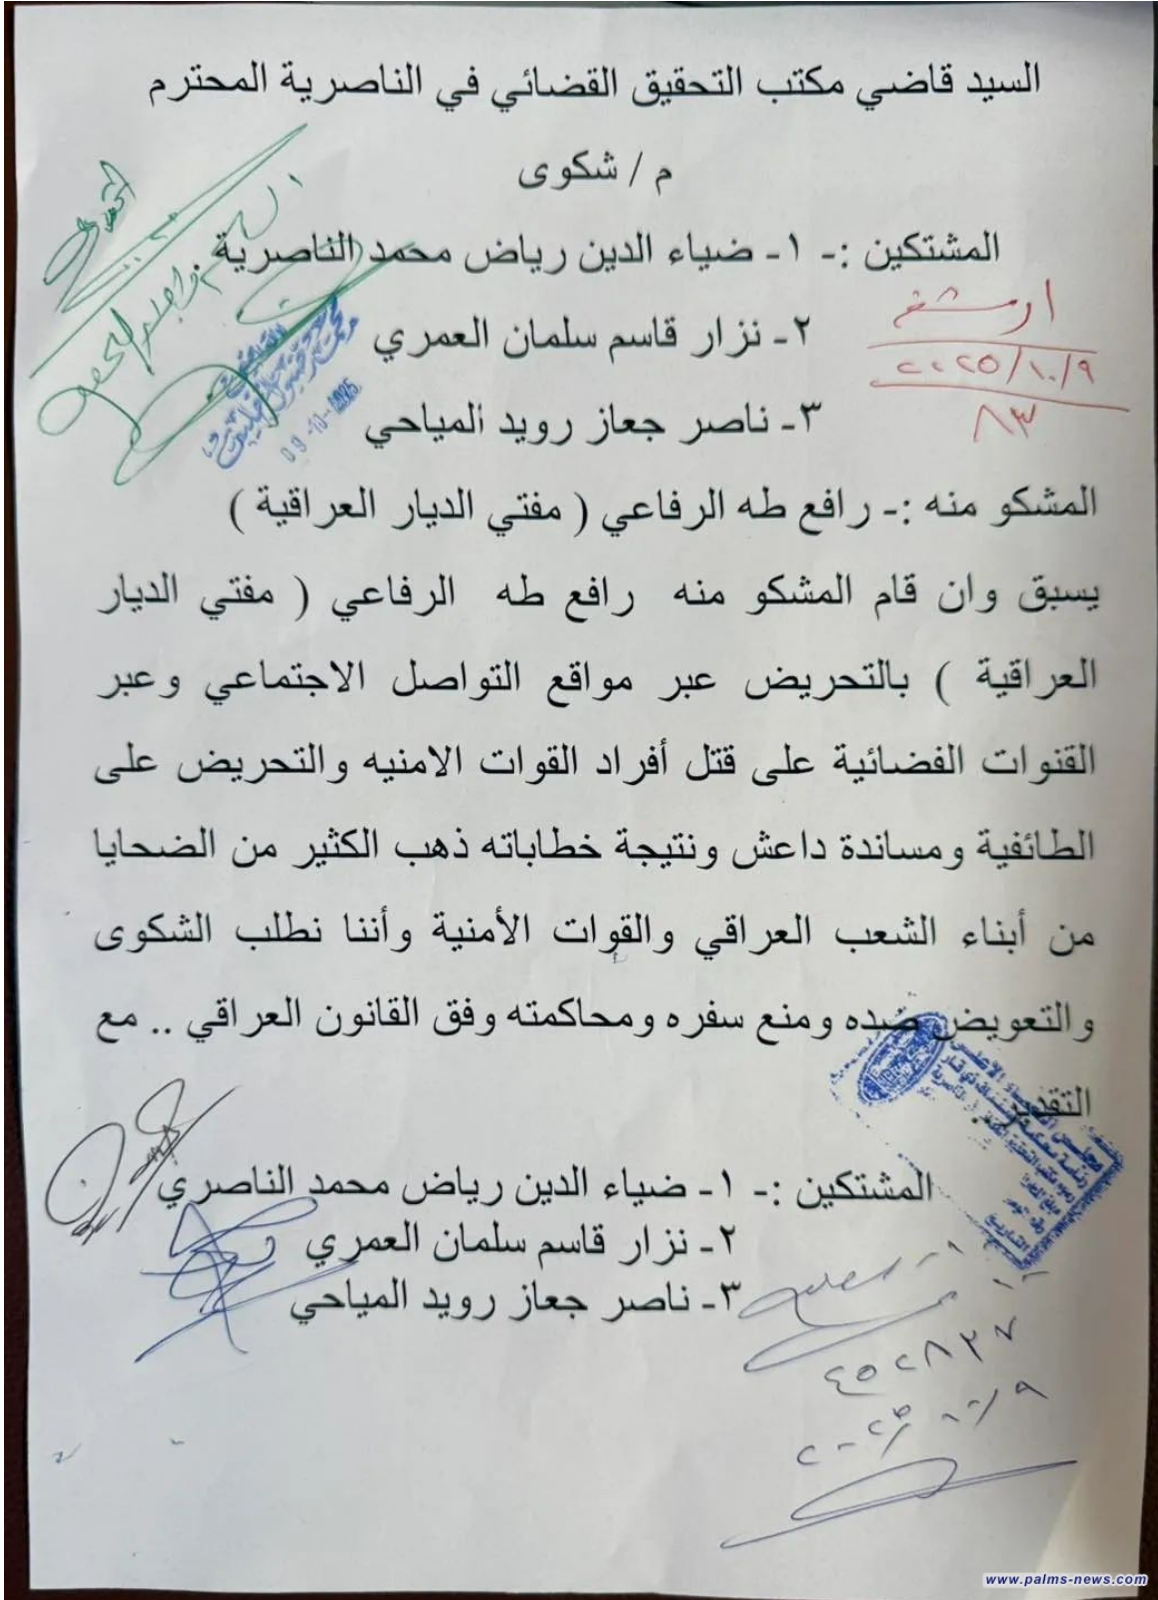 السيد قاضي مكتب التحقيق القضائي في الناصرية المحترم
م / شكوى
المشتكين :- ١- ضياء الدين رياض محمد الناصرية .
٢- نزار قاسم سلمان العمري
٣- ناصر جعاز رويد المياحي
ارشف
٢٠٢٥/١٠/٩
٨٣
09-10-2025
المشكو منه :- رافع طه الرفاعي ( مفتي الديار العراقية )
يسبق وان قام المشكو منه رافع طه الرفاعي ( مفتي الديار
العراقية ) بالتحريض عبر مواقع التواصل الاجتماعي وعبر
القنوات الفضائية على قتل أفراد القوات الامنيه والتحريض على
الطائفية ومساندة داعش ونتيجة خطاباته ذهب الكثير من الضحايا
من أبناء الشعب العراقي والقوات الأمنية وأننا نطلب الشكوى
والتعويض ضده ومنع سفره ومحاكمته وفق القانون العراقي .. مع
التقدير ..
المشتكين :- ١- ضياء الدين رياض محمد الناصري
٢- نزار قاسم سلمان العمري
٣- ناصر جعاز رويد المياحي
www.palms-news.com